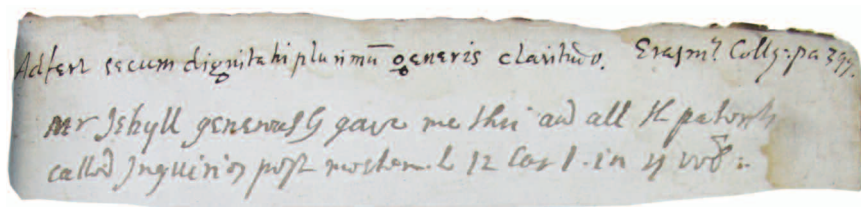 Adfert secum dignitati plurimū generis claritudo. Erasm: Collq: pa 399.
Mr Jekyll generously gave me this and all the patents
called Inquisitiōs post mortem. 12 Car 1. in yͤ